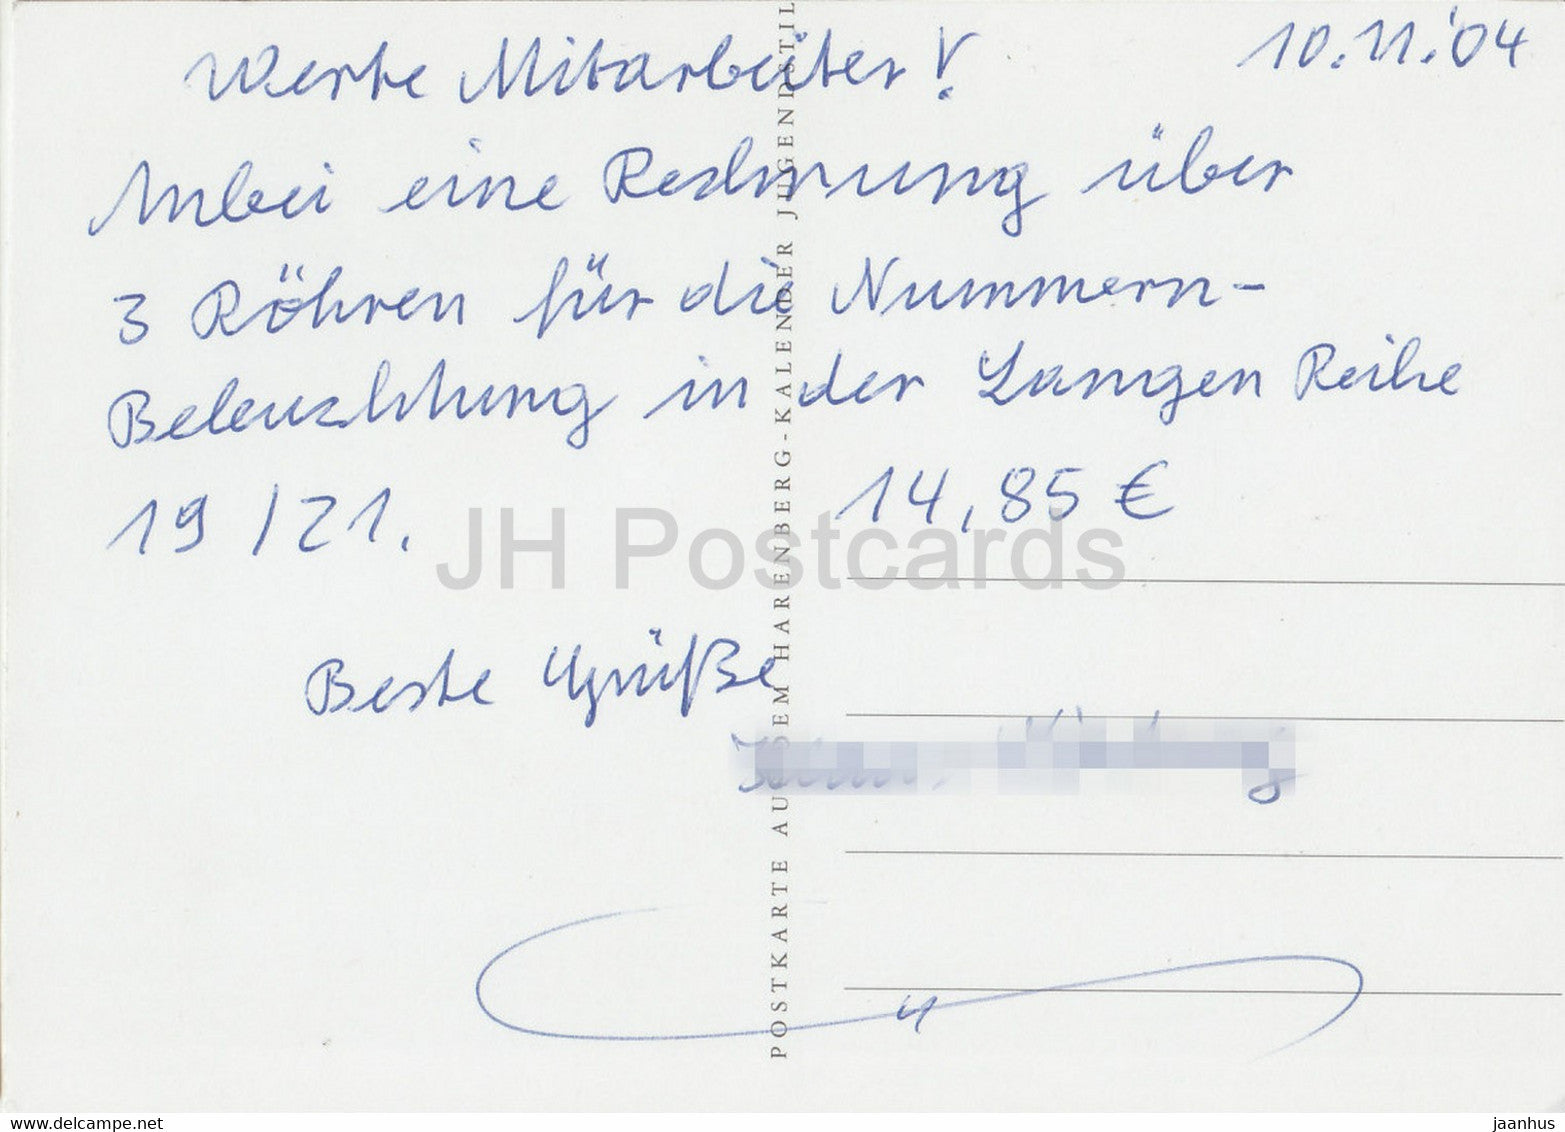 10.11.'04
Werte Mitarbeiter!
Anbei eine Rechnung über
3 Röhren für die Nummern-
Beleuchtung in der Langen Reihe
19/21. 14,85 €
Beste Grüße
POSTKARTE AUS DEM HARENBERG-KALENDER JUGENDSTIL
JH Postcards
www.delcampe.net
jaanhus